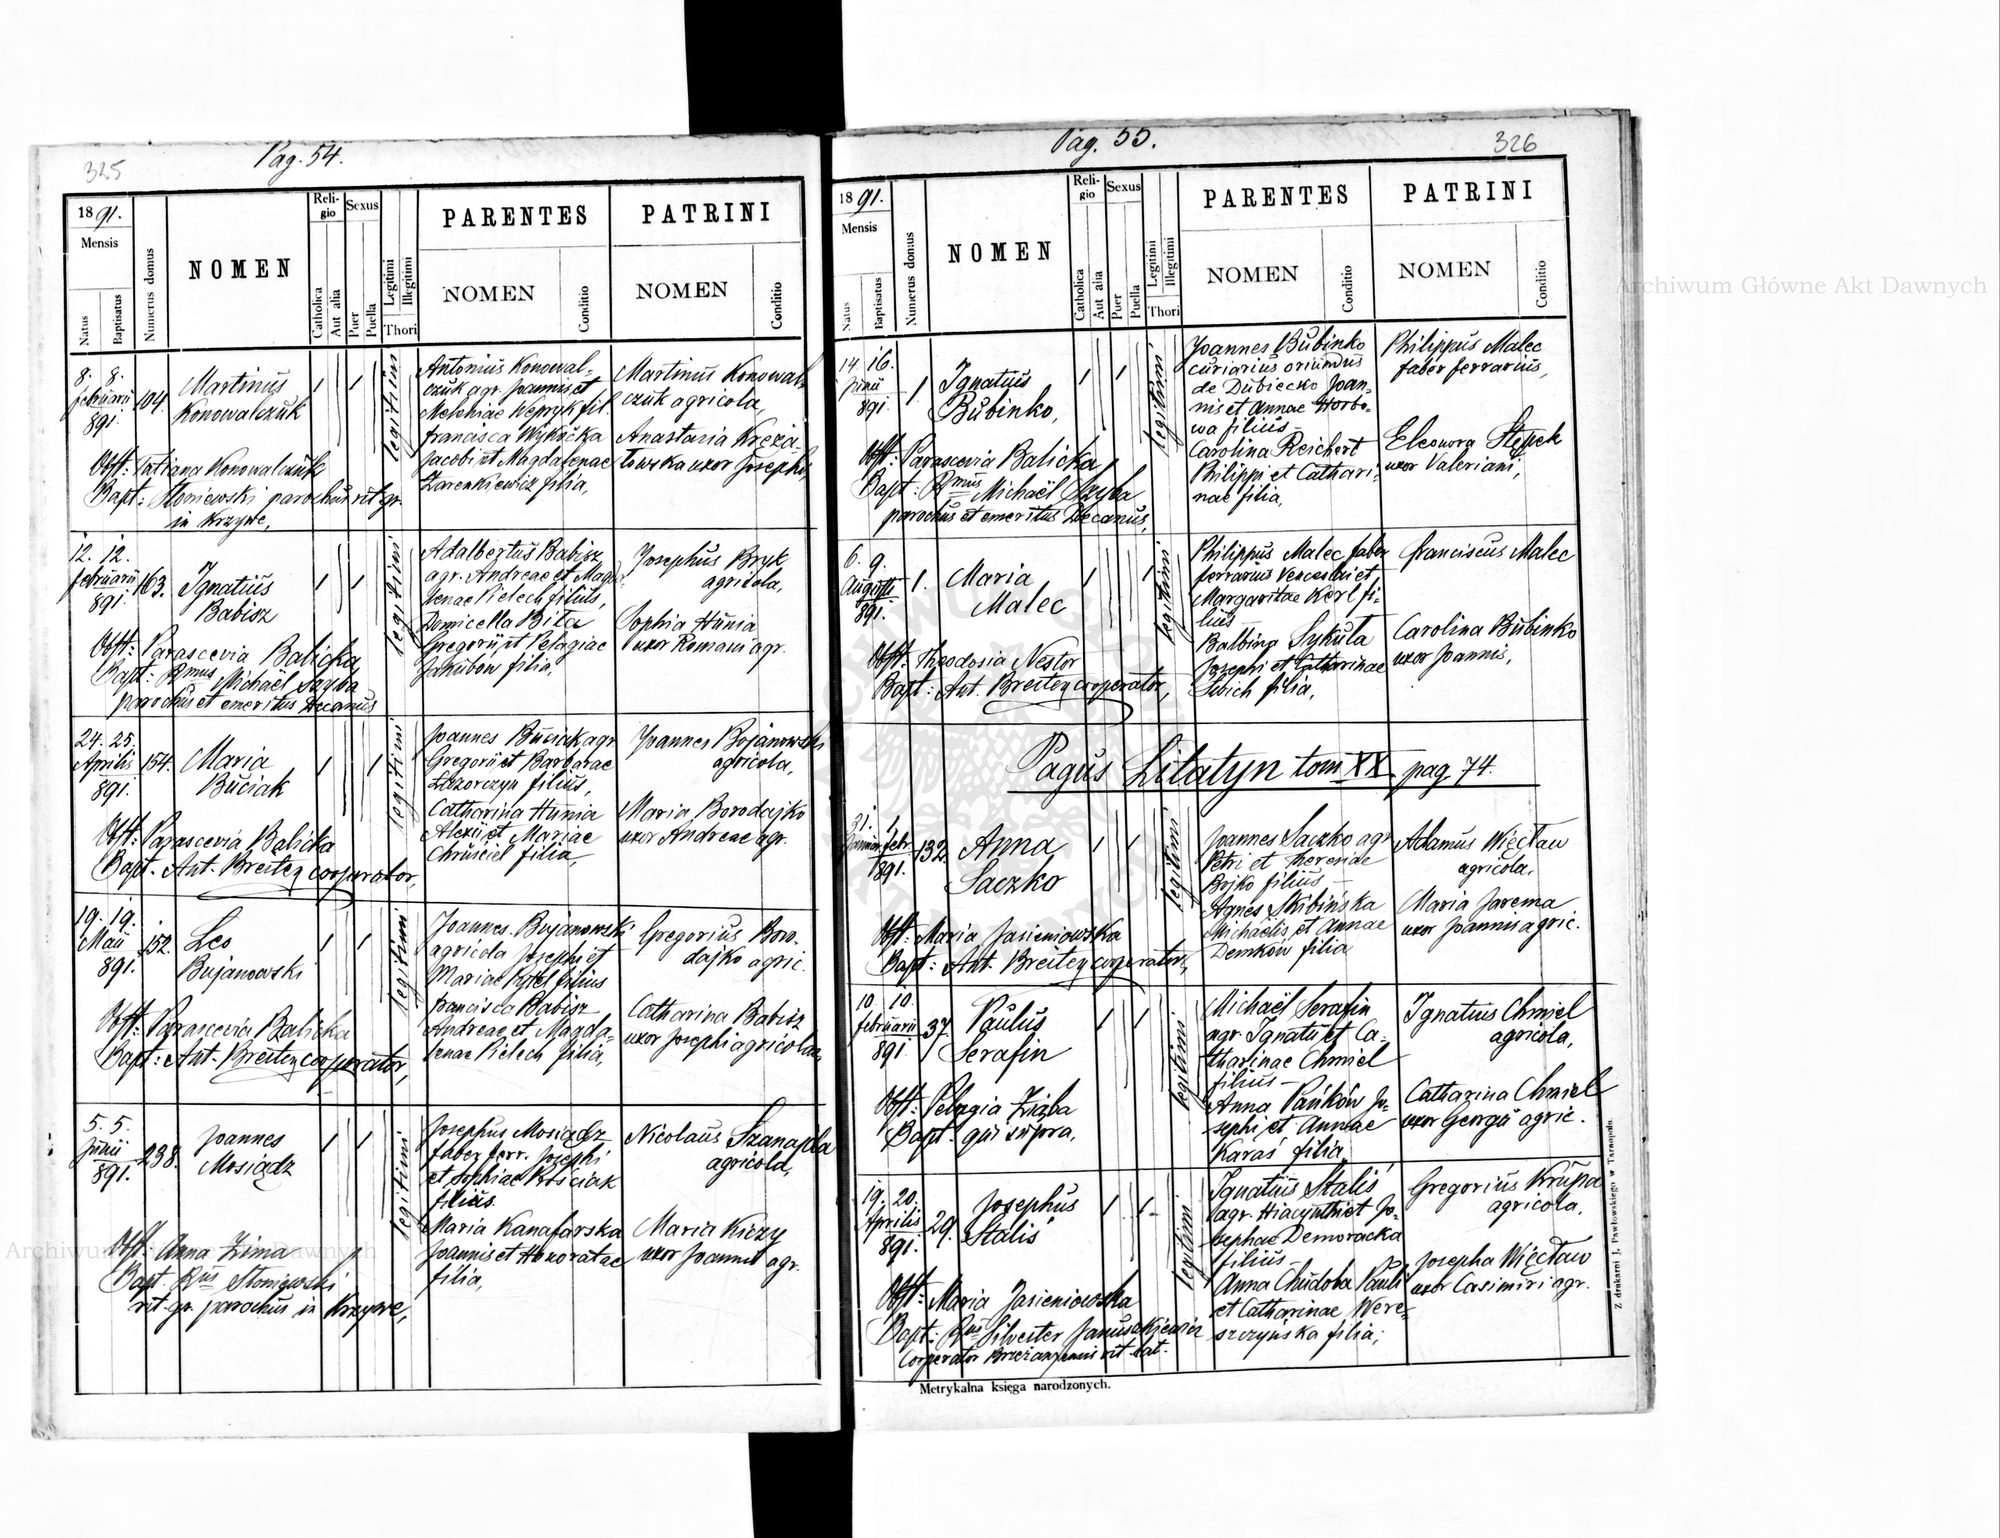 325
Pag. 54.
1891.
Mensis
Natus
Baptisatus
Numerus domus
NOMEN
Religio
Catholica
Aut alia
Sexus
Puer
Puella
Legitimi
Illegitimi
Thori
PARENTES
NOMEN
Conditio
PATRINI
NOMEN
Conditio
8. 8.
februarii
891.
104.
Martinus
Konowalczuk
legitimi
Antonius Konowal-
czuk agr. Joannis et
Melaniae Wepryk fil.
francisca Wykocka
Jacobi et Magdalenae
Zarenkiewicz filia,
Martinus Konowal-
czuk agricola,
Anastasia Kreza-
towska uxor Josephi,
Obst: Tatiana Konowalczuk
Bapt: Słoniewski parochus rit. gr.
in Krzywe,
12. 12.
februarii
891.
163.
Ignatius
Babisz
legitimi
Adalbertus Babisz
agr. Andreae et Magda-
lenae Pielech filius,
Domicella Biła
Gregorii et Pelagiae
Jakubow filia,
Josephus Bryk
agricola,
Sophia Hunia
uxor Romani agr.
Obst: Parascevia Balicka,
Bapt: Rmus Michaël Szyba
parochus et emeritus Decanus
24. 25.
Aprilis
891.
154.
Maria
Buciak
legitimi
Joannes Buciak agr
Gregorii et Barbarae
Łazorczyn filius,
Catharina Hunia
Alexii et Mariae
Chruściel filia,
Joannes Bojanowski
agricola,
Maria Borodajko
uxor Andreae agr.
Obst: Parascevia Balicka
Bapt. Ant. Breiter cooperator,
19. 19.
Maii
891.
152.
Leo
Bujanowski
legitimi
Joannes Bujanowski
agricola Josephi et
Mariae Pytel filius
francisca Babisz
Andreae et Magda-
lenae Pielech filia,
Gregorius Boro-
dajko agric.
Catharina Babisz
uxor Josephi agricolae,
Obst: Parascevia Balicka
Bapt: Ant. Breiter cooperator,
5. 5.
Junii
891.
238.
Joannes
Mosiądz
legitimi
Josephus Mosiądz
faber ferr. Josephi
et Sophiae Kościak
filius.
Maria Kanafarska
Joannis et Honoratae
filia,
Nicolaus Szanajda
agricola,
Maria Kiczy
uxor Joannis agr.
Obst. Anna Zima
Bapt. Rus Słoniewski
rit. gr. parochus in Krzywe,
Pag. 55.
326
1891.
Mensis
Natus
Baptisatus
Numerus domus
NOMEN
Religio
Catholica
Aut alia
Sexus
Puer
Puella
Legitimi
Illegitimi
Thori
PARENTES
NOMEN
Conditio
PATRINI
NOMEN
Conditio
14. 16.
Junii
891.
1
Ignatius
Bubinko,
legitimi
Joannes Bubinko
curiarius oriundus
de Dubiecko Joan-
nis et Annae Horbo-
wa filius -
Carolina Reichert
Philippi et Cathari-
nae filia,
Philippus Malec
faber ferrarius,
Eleonora Stępek
uxor Valeriani,
Obst: Parascevia Balicka,
Bapt: Rmus Michaël Szyba
parochus et emeritus Decanus,
6. 9.
Augusti
891.
1.
Maria
Malec
legitimi
Philippus Malec faber
ferrarius Venceslai et
Margaritae Kerl fi-
lius -
Balbina Sykuta
Josephi et Catharinae
Sibich filia,
franciscus Malec
Carolina Bubinko
uxor Joannis,
Obst: Theodosia Nestor
Bapt: Ant. Breiter cooperator,
Pagus Litatyn tom XX. pag. 74.
31. 1.
Januar. febr.
891.
132.
Anna
Saczko
legitimi
Joannes Saczko agr
Petri et Theresiae
Bojko filius -
Agnes Skibińska
Michaëlis et Annae
Demków filia
Adamus Więcław
agricola,
Maria Jarema
uxor Joannis agric.
Obst: Maria Jasieniowska
Bapt: Ant. Breiter cooperator,
10. 10.
februarii
891.
37.
Paulus
Serafin
legitimi
Michaël Serafin
agr. Ignatii et Ca-
tharinae Chmiel
filius -
Anna Pańków Jo-
sephi et Annae
Karaś filia,
Ignatius Chmiel
agricola,
Catharina Chmiel
uxor Georgii agric.
Obst: Pelagia Ziąba
Bapt. qui supra,
19. 20.
Aprilis
891.
29.
Josephus
Staliś
legitimi
Ignatius Staliś
agr. Hiacynthi et Jo-
sephae Demoracka
filius -
Anna Chudoba Pauli
et Catharinae Were-
szczyńska filia;
Gregorius Krupa
agricola,
Josepha Więcław
uxor Casimiri agr.
Obst: Maria Jasieniowska
Bapt: Rus Silvester Januszkiewicz
Cooperator Brzeżanyensis rit. lat.
Metrykalna księga narodzonych.
Z drukarni J. Pawłowskiego w Tarnopolu.
Archiwum Główne Akt Dawnych
Archiwum Główne Akt Dawnych